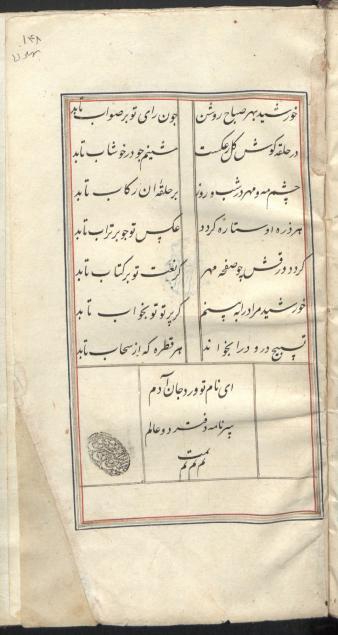 خورشید بهر صباح روشن چون رای تو بر صواب تابد
در حلقه گوش گل عکست شبنم چو در خوشاب تابد
چشم مه و مهر در شب و روز بر حلقه آن رکاب تابد
هر ذره او ستاره گردد عکس تو چو بر تراب تابد
گردد ورقش چو صفحه مهر گر نعت تو بر کتاب تابد
خورشید مرا در آبه بینم گر پرتو تو بخواب تابد
تسبیح درود را بخواند هر قطره که از سحاب تابد
ای نام تو ورد جان آدم
سرنامه دفتر دو عالم
تمت تم تم